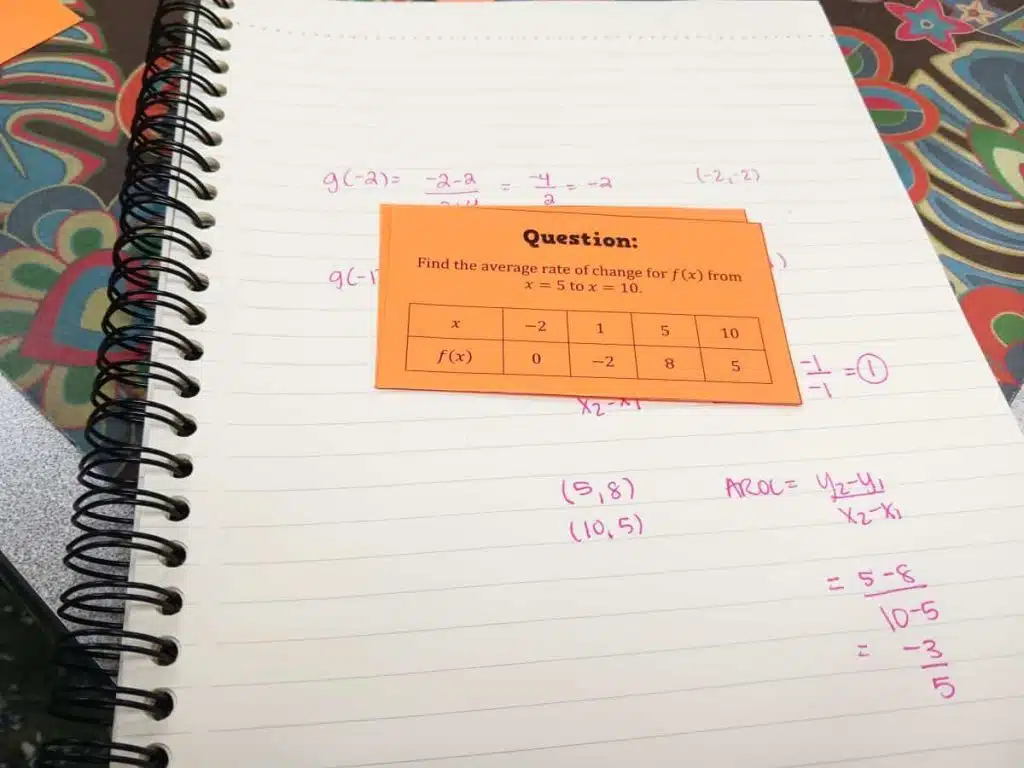 g(-2)= -2-2 = -4/2 = -2 (-2,-2)
g(-1
Question:
Find the average rate of change for f(x) from
x = 5 to x = 10.
x −2 1 5 10
f(x) 0 −2 8 5
-1/-1 = 1
x2-x1
(5,8) AROC = y2-y1/x2-x1
(10,5)
= 5-8/10-5
= -3/5